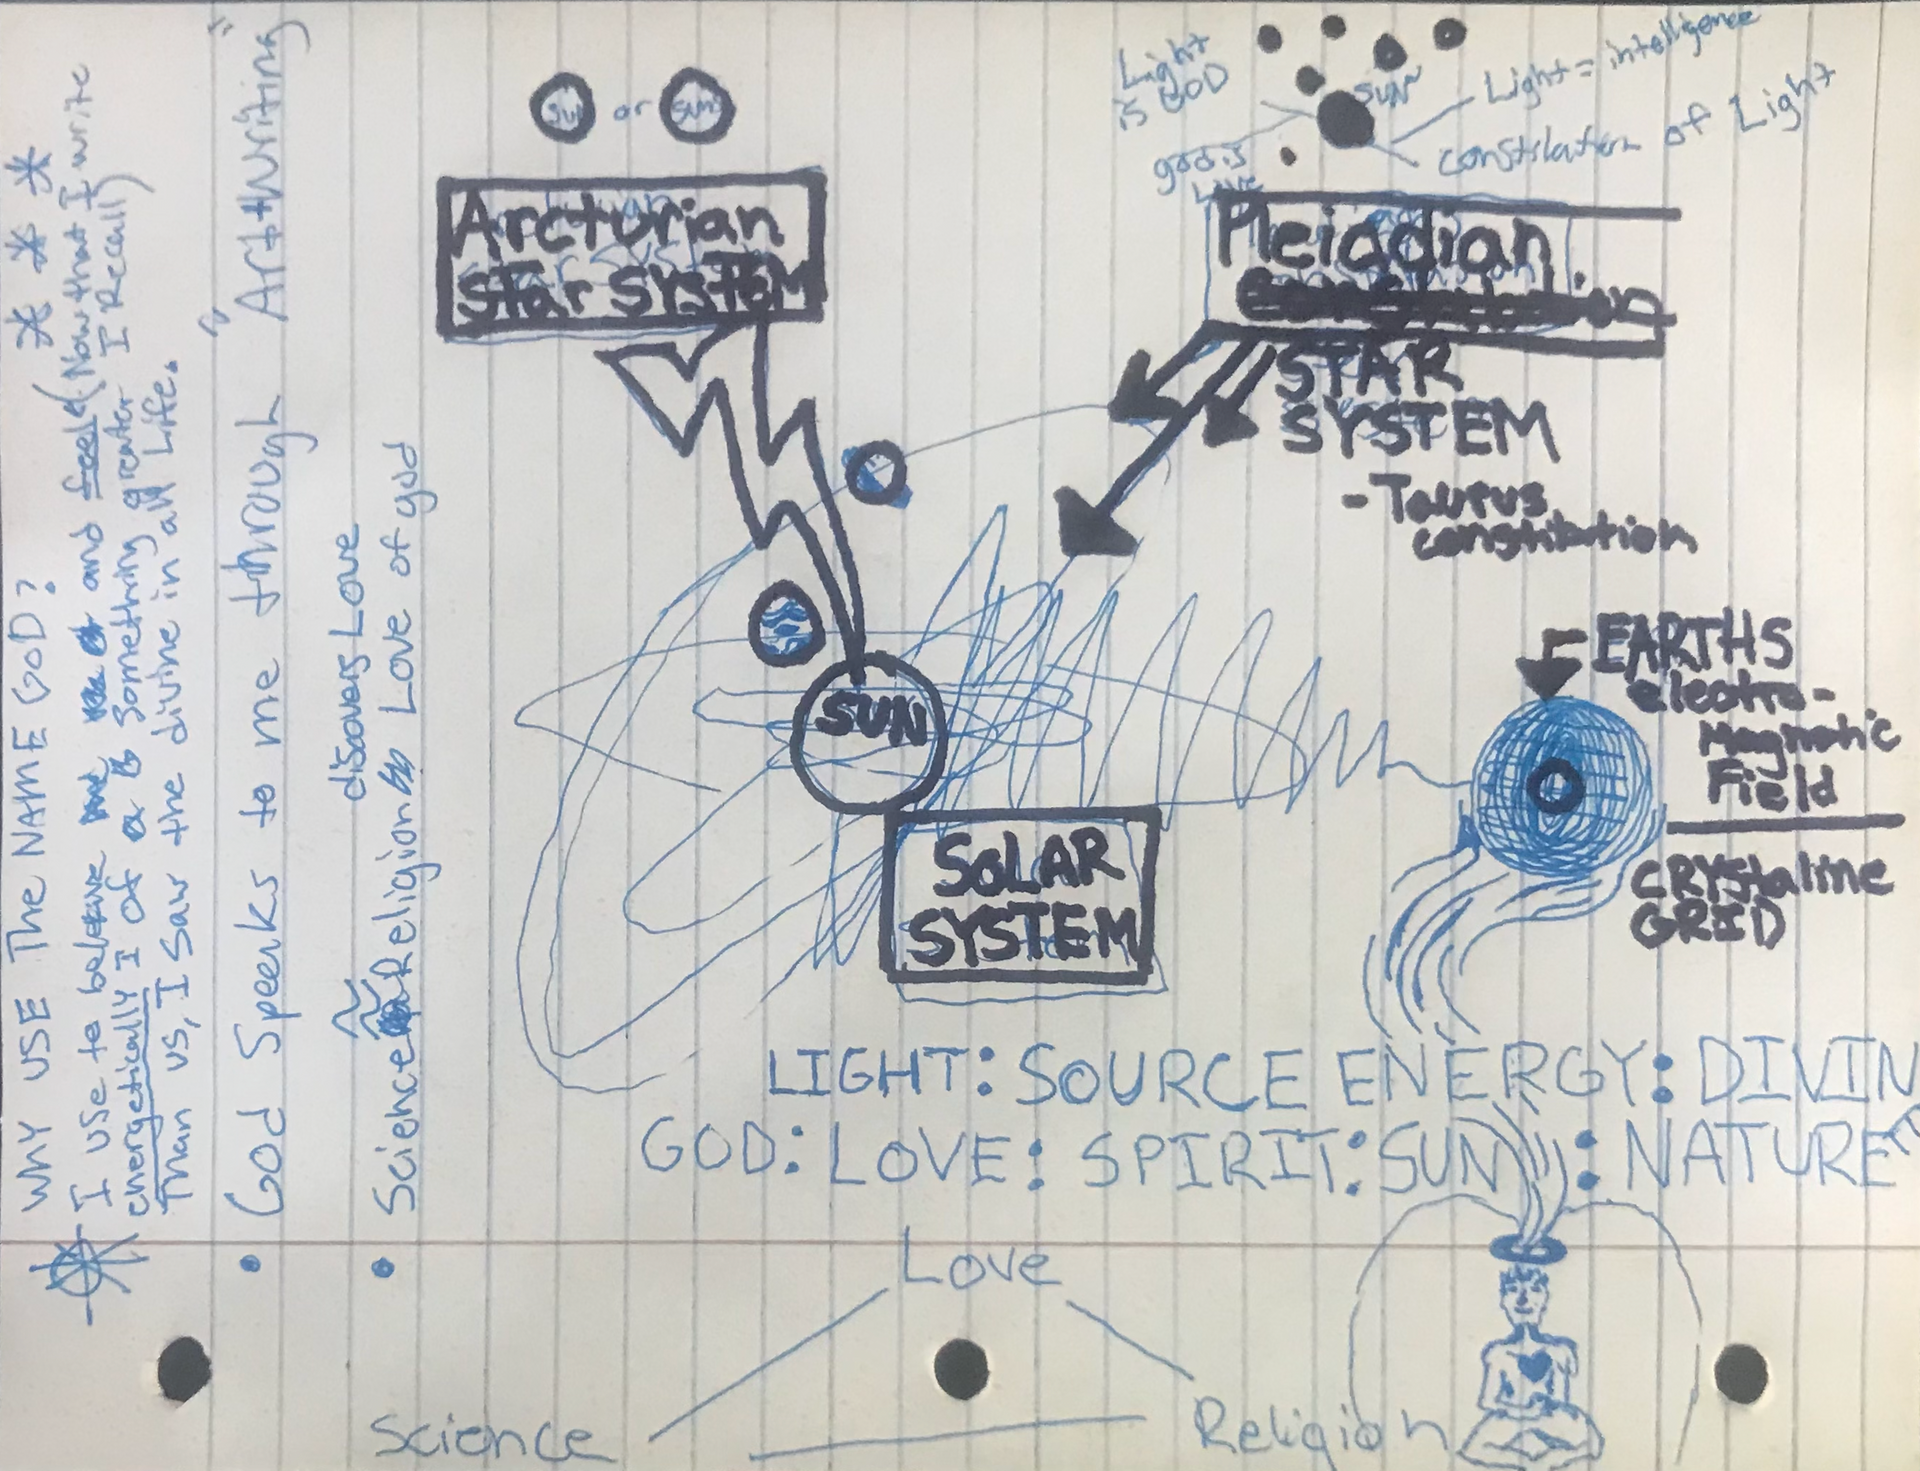 WHY USE The NAME GOD? * * *
I use to beleive and feel (Now that I write
energetically I of a Something greater I Recall)
Than us, I Saw the divine in all Life.
• God Speaks to me through "Art+writing"
discovers Love
• Science Religion Love of god
SUN or SUN
Arcturian
Star SYSTEM
Light
is GOD
god is
Love
SUN
Light = intelligence
constilation of Light
Pleiadian
STAR
SYSTEM
- Taurus
constilbution
SUN
SOLAR
SYSTEM
EARTHS
electro-
Magnetic
Field
CRYStaline
GRID
LIGHT: SOURCE ENERGY: DIVINE
GOD: LOVE: SPIRIT: SUN: NATURE
Love
Science
Religion